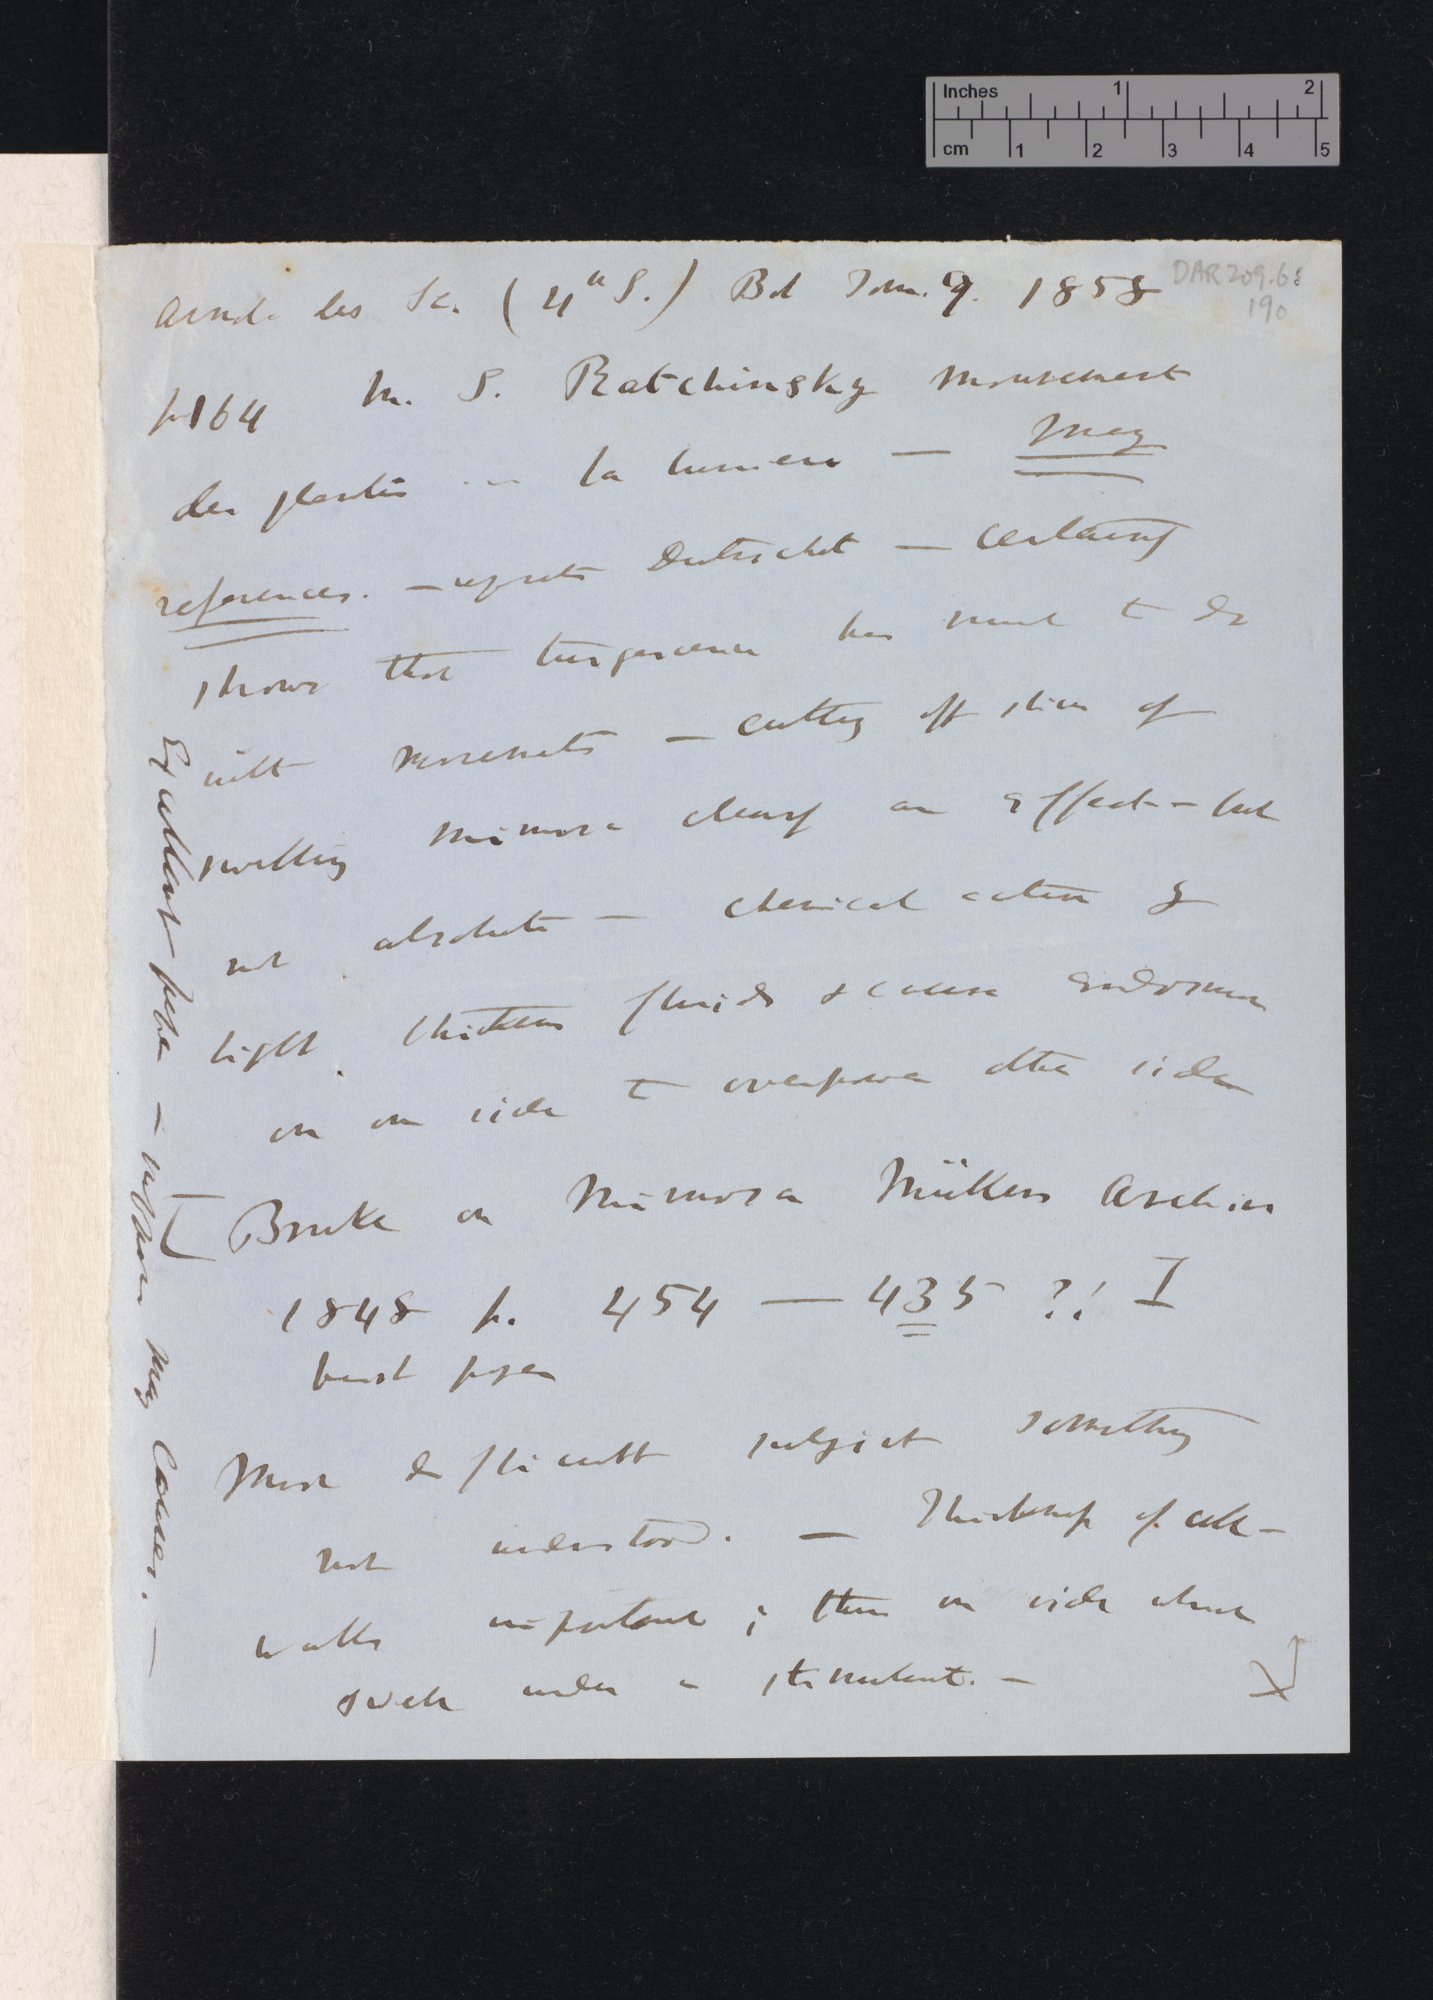 Annal. des Sc. (4th S.) Bot Tom. 9. 1858
DAR 209.6:
190
p164 M. S. Ratchinsky Mouvement
des plantes la lumiere — Many
references. — Dutrochet — certainly
shows that turgescence has much to do
with movements — cutting off skin of
swelling Mimosa clearly an effect — but
not absolute — chemical action of
light thickens fluids & cause endosmose
on one side to overpower other side
[Bruke on Mimosa Müllers Archiv
1848 p. 454 — 435 ?! ]
Most difficult subject something
not understood. — Thickness of cell-
walls important; thin on side which
swell under a stimulant. —
Excellent paper — many causes. —
Inches 1 2
cm 1 2 3 4 5